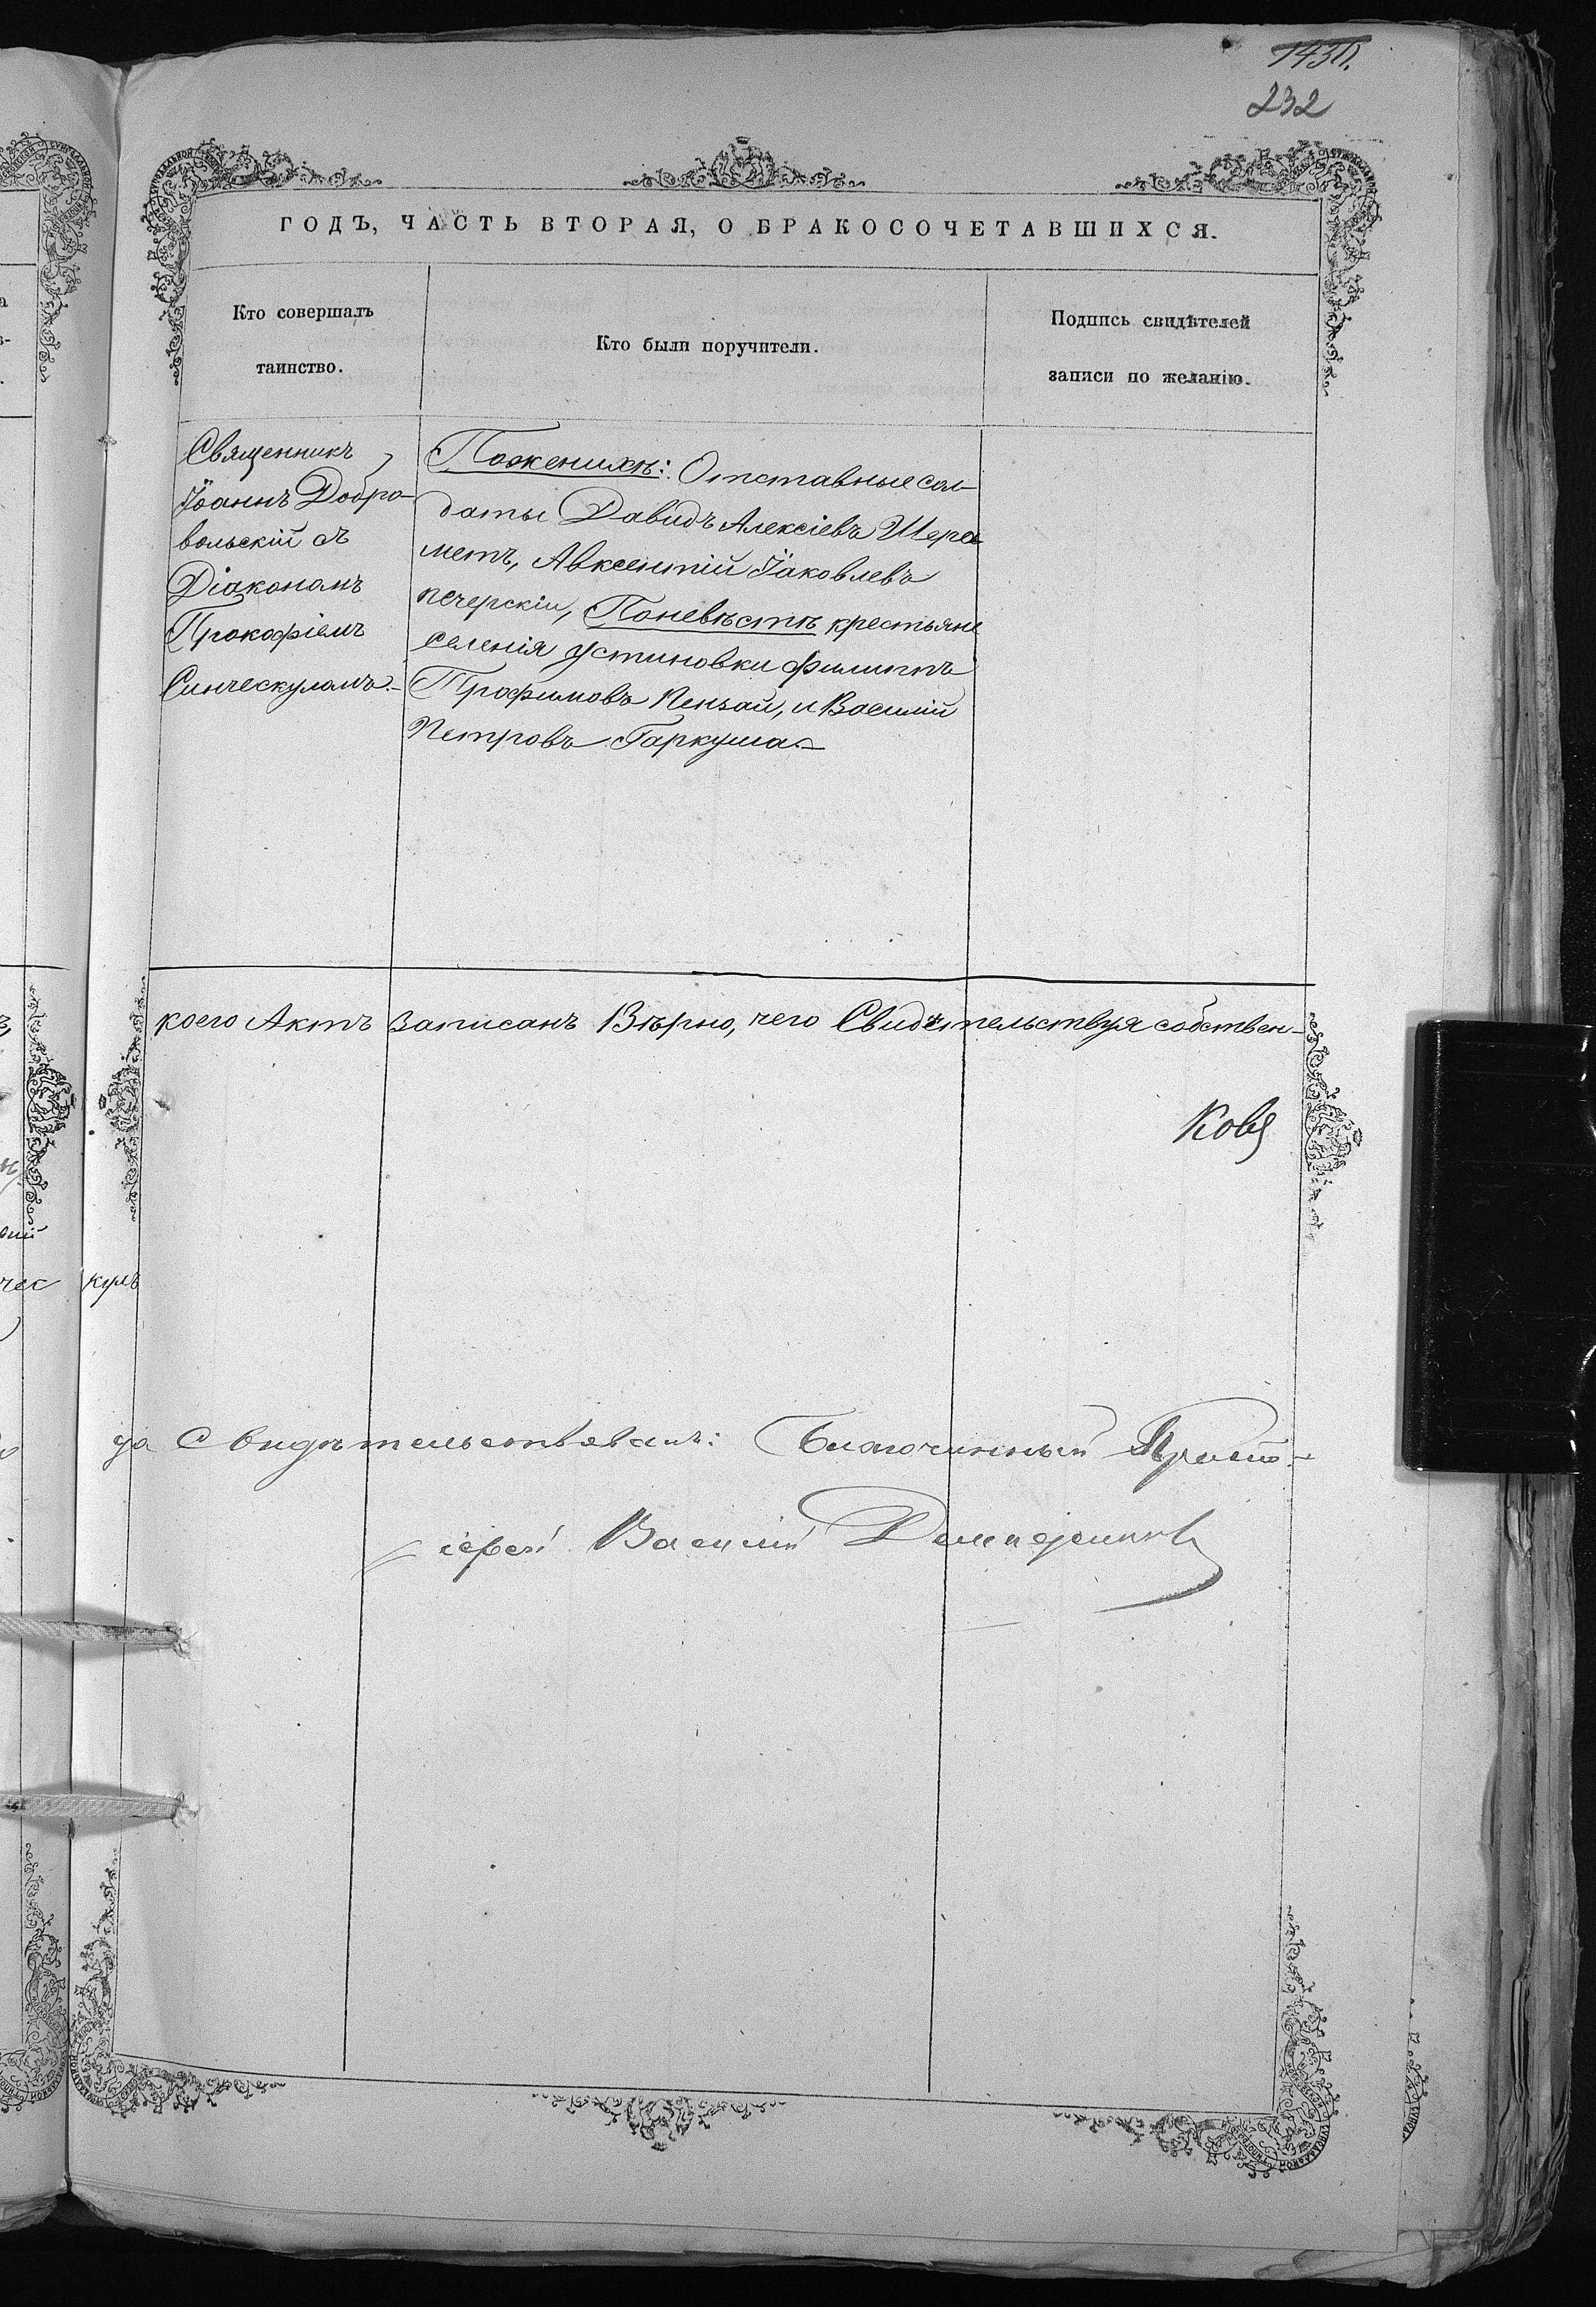 1431.
232
ГОДЪ, ЧАСТЬ ВТОРАЯ, О БРАКОСОЧЕТАВШИХСЯ.
Кто совершалъ
таинство.
Кто были поручители.
Подпись свидѣтелей
записи по желанію.
Священникъ
Іоаннъ Добро-
вольскій съ
Діакономъ
Прокофіемъ
Синческуломъ.-
Поженихѣ: Отставные сол-
даты Давидъ Алексіевъ Шере-
метъ, Авксентій Іаковлевъ
печерскіи, Поневѣстѣ крестьяне
селенія устиновки филиппъ
Трофимовъ Пензай, и Василій
Петровъ Гаркуша.-
коего Актъ записанъ Вѣрно, чего Свидѣтельствуя собствен-
кулъ
да Свидѣтельствовалъ: Благочинный Прото-
іерей Василій